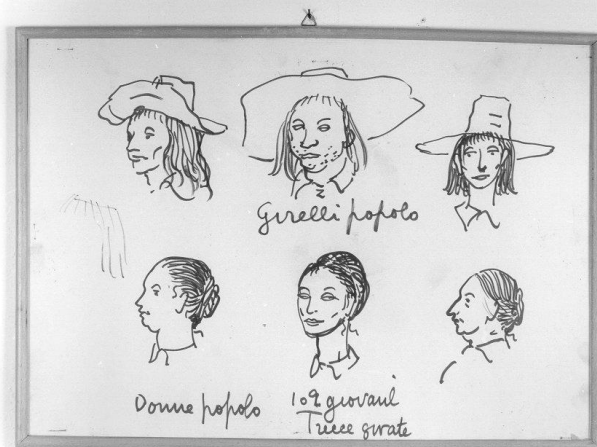 Girelli popolo
Donne popolo
giovani
Trecce girate